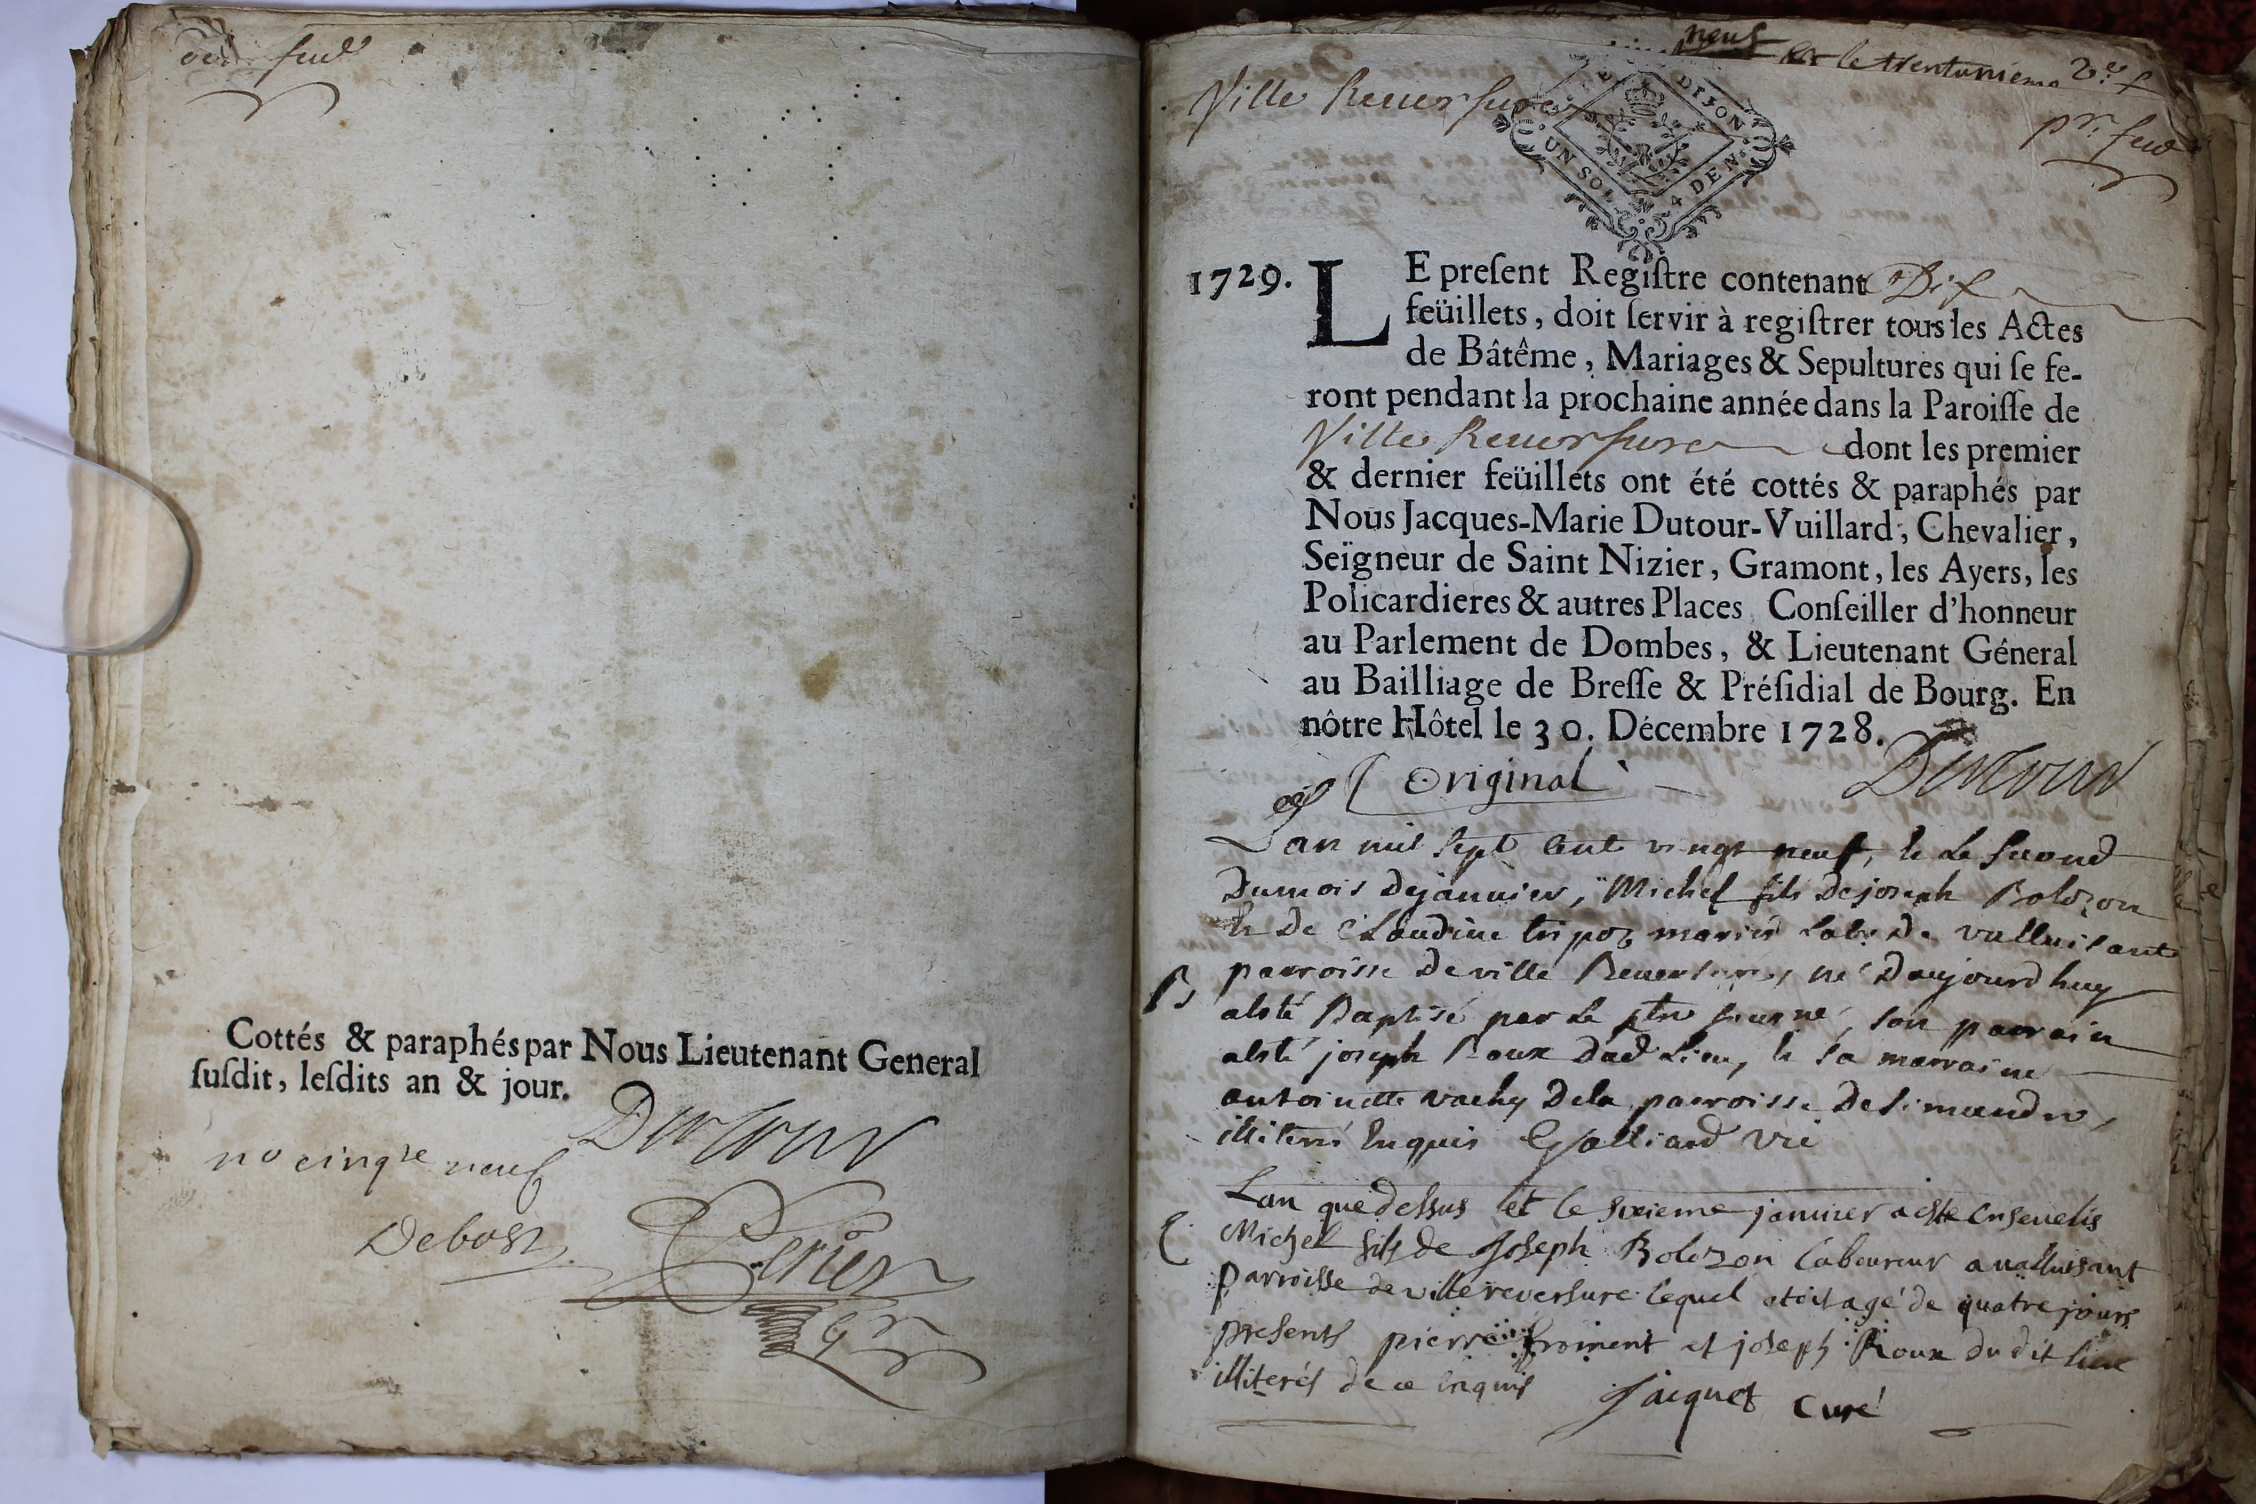 Cottés & paraphés par Nous Lieutenant General
ſuſdit, leſdits an & jour.
Dutour
no cinqte neuf
Debost
Perier
neuf
le trentunieme 2e f
Ville Reuersure
pr. feu
DIJON
UN SOL 4 DEN.
1729. LE preſent Regiſtre contenant Dix
feüillets, doit ſervir à regiſtrer tous les Actes
de Bâtême, Mariages & Sepultures qui ſe fe-
ront pendant la prochaine année dans la Paroiſſe de
Ville Reuersure dont les premier
& dernier feüillets ont été cottés & paraphés par
Nous Jacques-Marie Dutour-Vuillard, Chevalier,
Seïgneur de Saint Nizier, Gramont, les Ayers, les
Policardieres & autres Places, Conſeiller d'honneur
au Parlement de Dombes, & Lieutenant Géneral
au Bailliage de Breſſe & Préſidial de Bourg. En
nôtre Hôtel le 30. Décembre 1728.
Original
Dutour
Lan mil sept cent vingt neuf, et le second
Dumois dejanuier, Michel fils de joseph Bolozon
et De Claudine tripoz mariés Labrs De valluisant
parroisse de ville Reuersure, né Daujourdhuy
B
aleté Baptisé par le ptre soussné, son parrain
aleté joseph Roux Dud Lieu, et sa marraine
antoinette vachy Dela parroisse De simandre,
illiterés Enquis Gualliard vic
Lan quedessus et le sixieme januier a este enseuelis
Michel fils de Joseph Bolozon laboureur a ualluisant
parroisse de villereversure lequel etoit agé de quatre jours
presents pierre froment et joseph Roux du dit lieu
illiterés de ce enquis Jacquet Curé